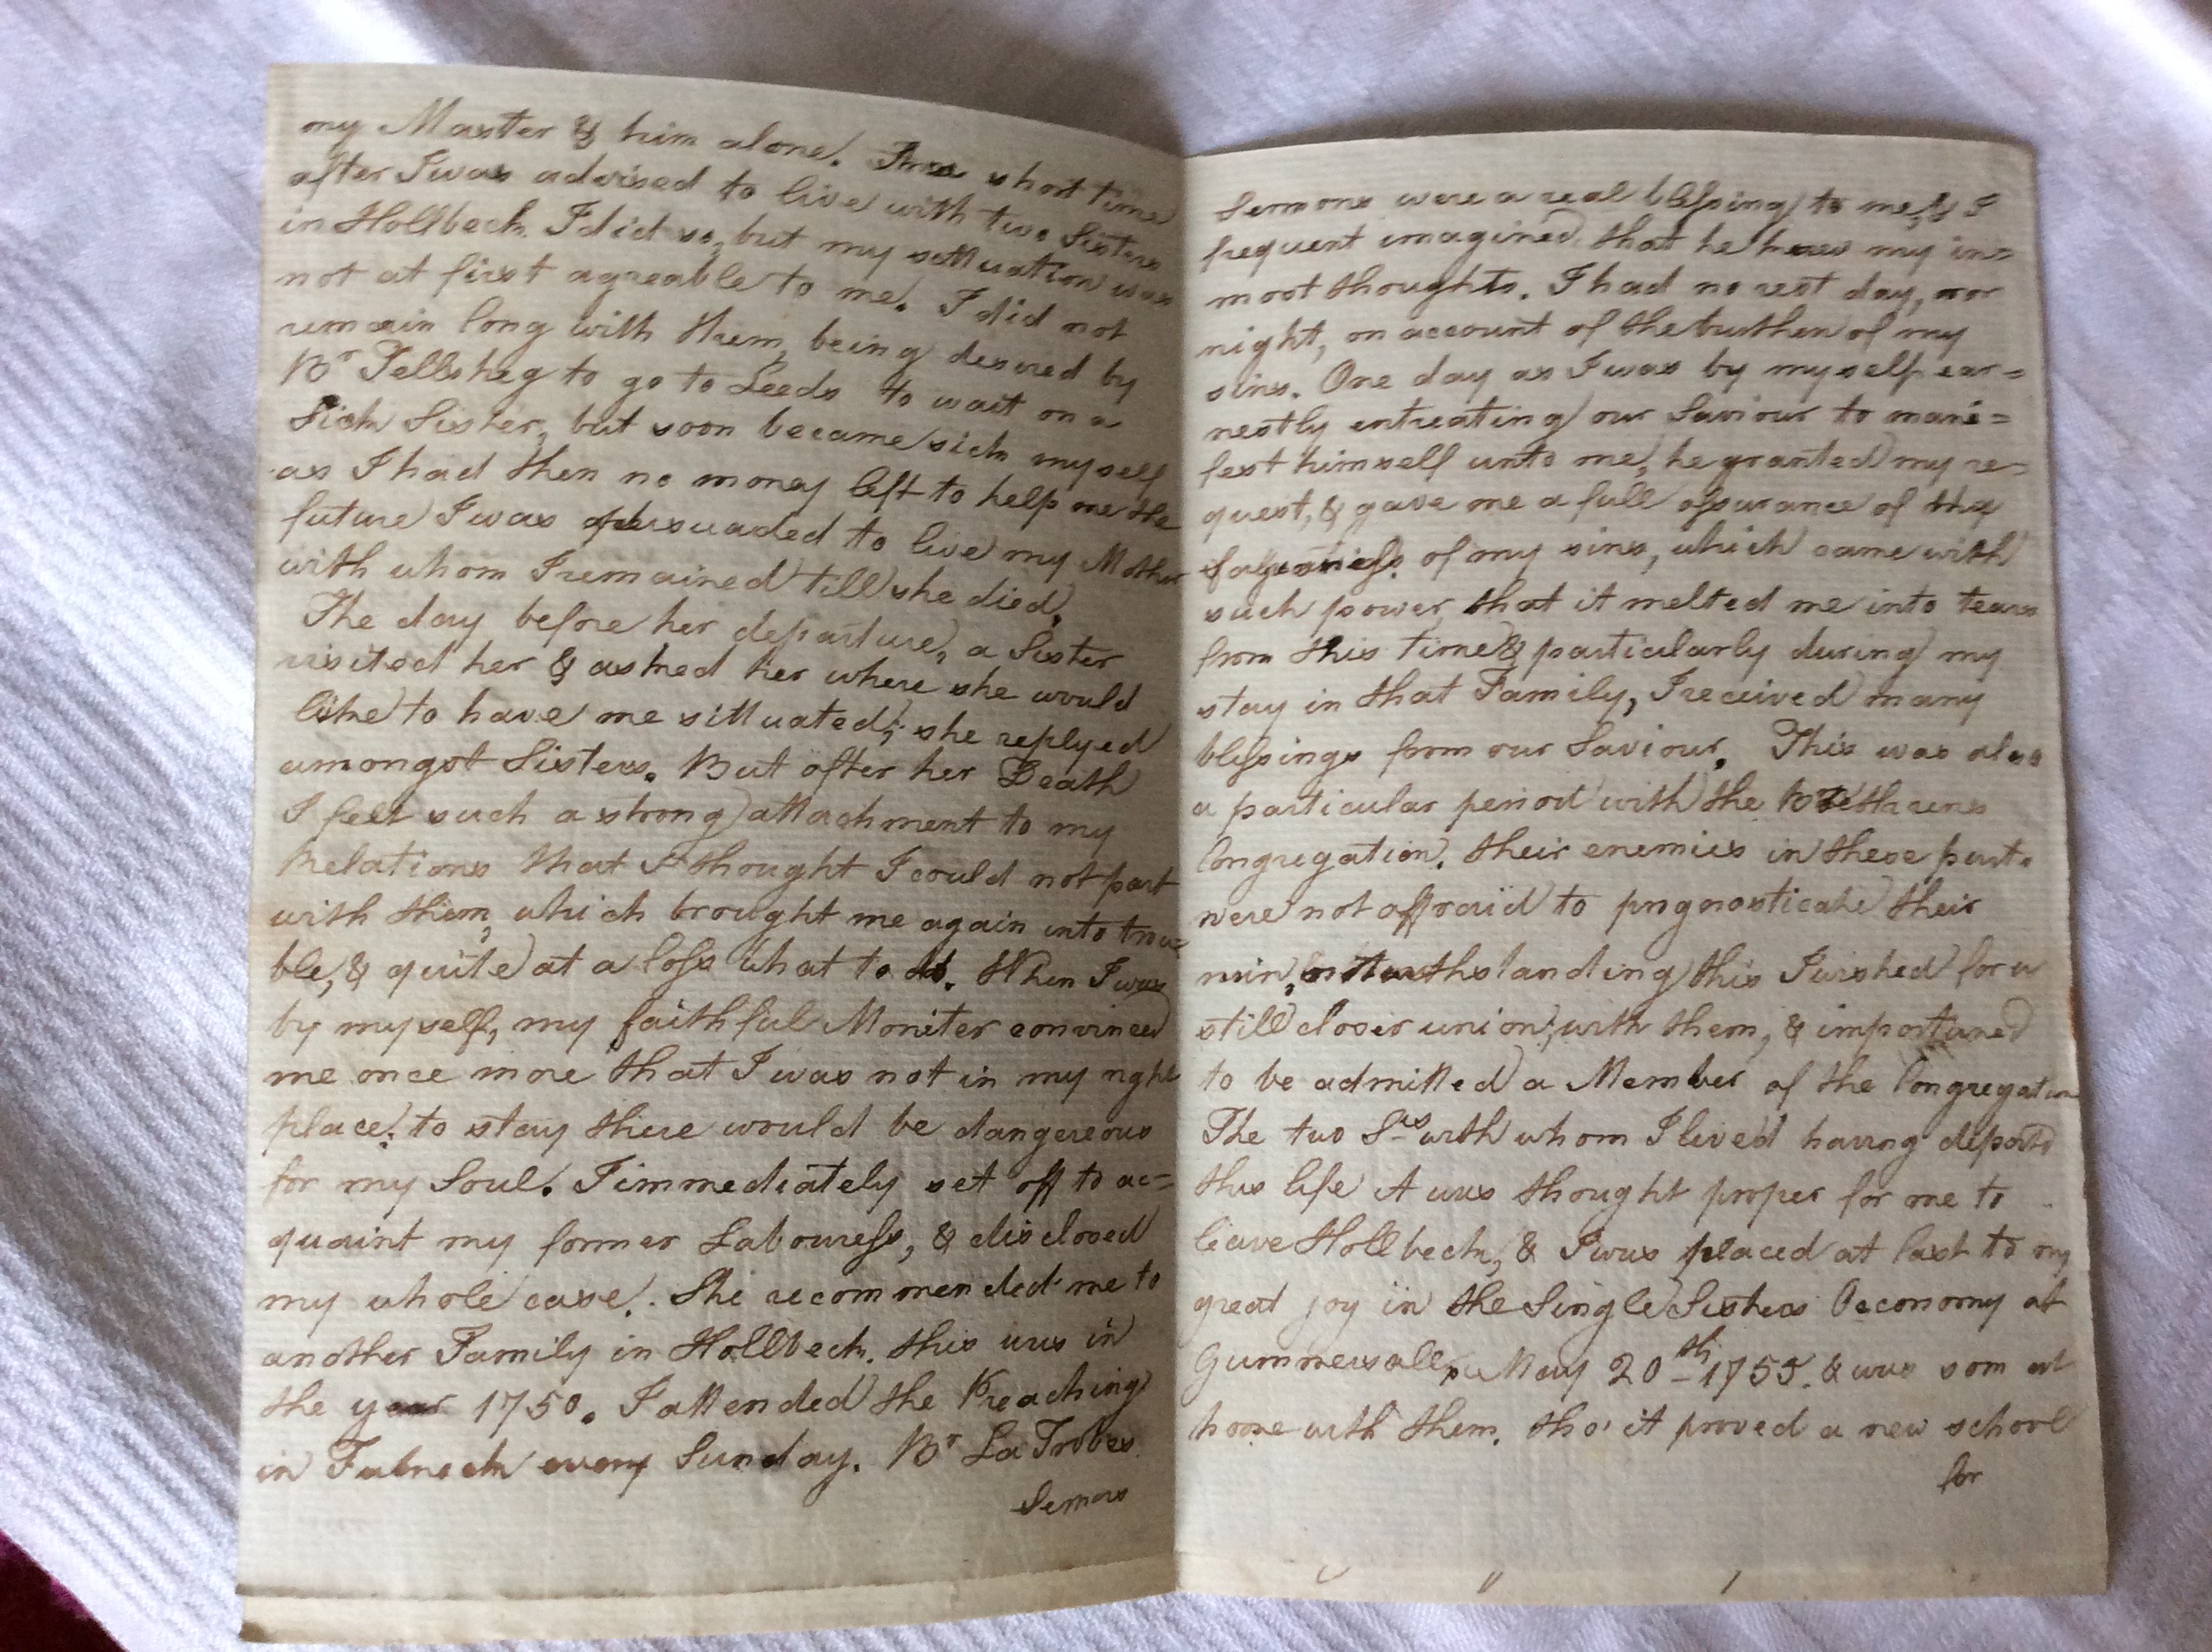 my Master & him alone. short time
after I was advised to live with two Sisters
in Hollbeck. I did so, but my sittuation was
not at first agreable to me. I did not
remain long with them, being desired by
Br to go to Leeds to wait on a
Sick Sister, but soon became sick myself
as I had then no money left to help me the
future I was persuaded to live my Mother
with whom I remained till she died.
The day before her departure, a Sister
visited her & asked her where she would
like to have me sittuated; she replyed
amongst Sisters. But after her Death
I felt such a strong attachment to my
Relations that I thought I could not part
with them, which brought me again into trou=
ble, & quite at a loss what to do. When I was
by myself, my faithful Moniter convinced
me once more that I was not in my right
place; to stay there would be dangereous
for my Soul. I immediately set off to ac=
quaint my former Labouress, & disclosed
my whole case. She recommended me to
another Family in Hollbeck. this was in
the year 1750. I attended the Preaching
in Fulneck every Sunday. Br La Trobes
Sermons
Sermons were a real blessing to me, & I
frequent imagined that he knew my in=
most thoughts. I had no rest day, nor
night, on account of the burthen of my
sins. One day as I was by myself ear=
nestly entreating our Saviour to mani=
fest himself unto me, he granted my re=
quest, & gave me a full assurance of the
of my sins, which came with
such power that it melted me into tears
from this time & particularly during my
stay in that Family, I received many
blessings from our Saviour. This was also
a particular period with the Brethrens
Congregation. their enemies in these parts
were not affraid to prognosticate their
ruin, notwithstanding this I wished for a
still closer union; with them, & importuned
to be admitted a Member of the Congregation
The two Srs with whom I lived having departd
this life it was thought proper for me to
leave Hollbeck, & I was placed at last to my
great joy in the Single Sisters Oeconomy at
Gummersall, May 20th 1755. & was soon at
home with them. tho' it proved a new school
for